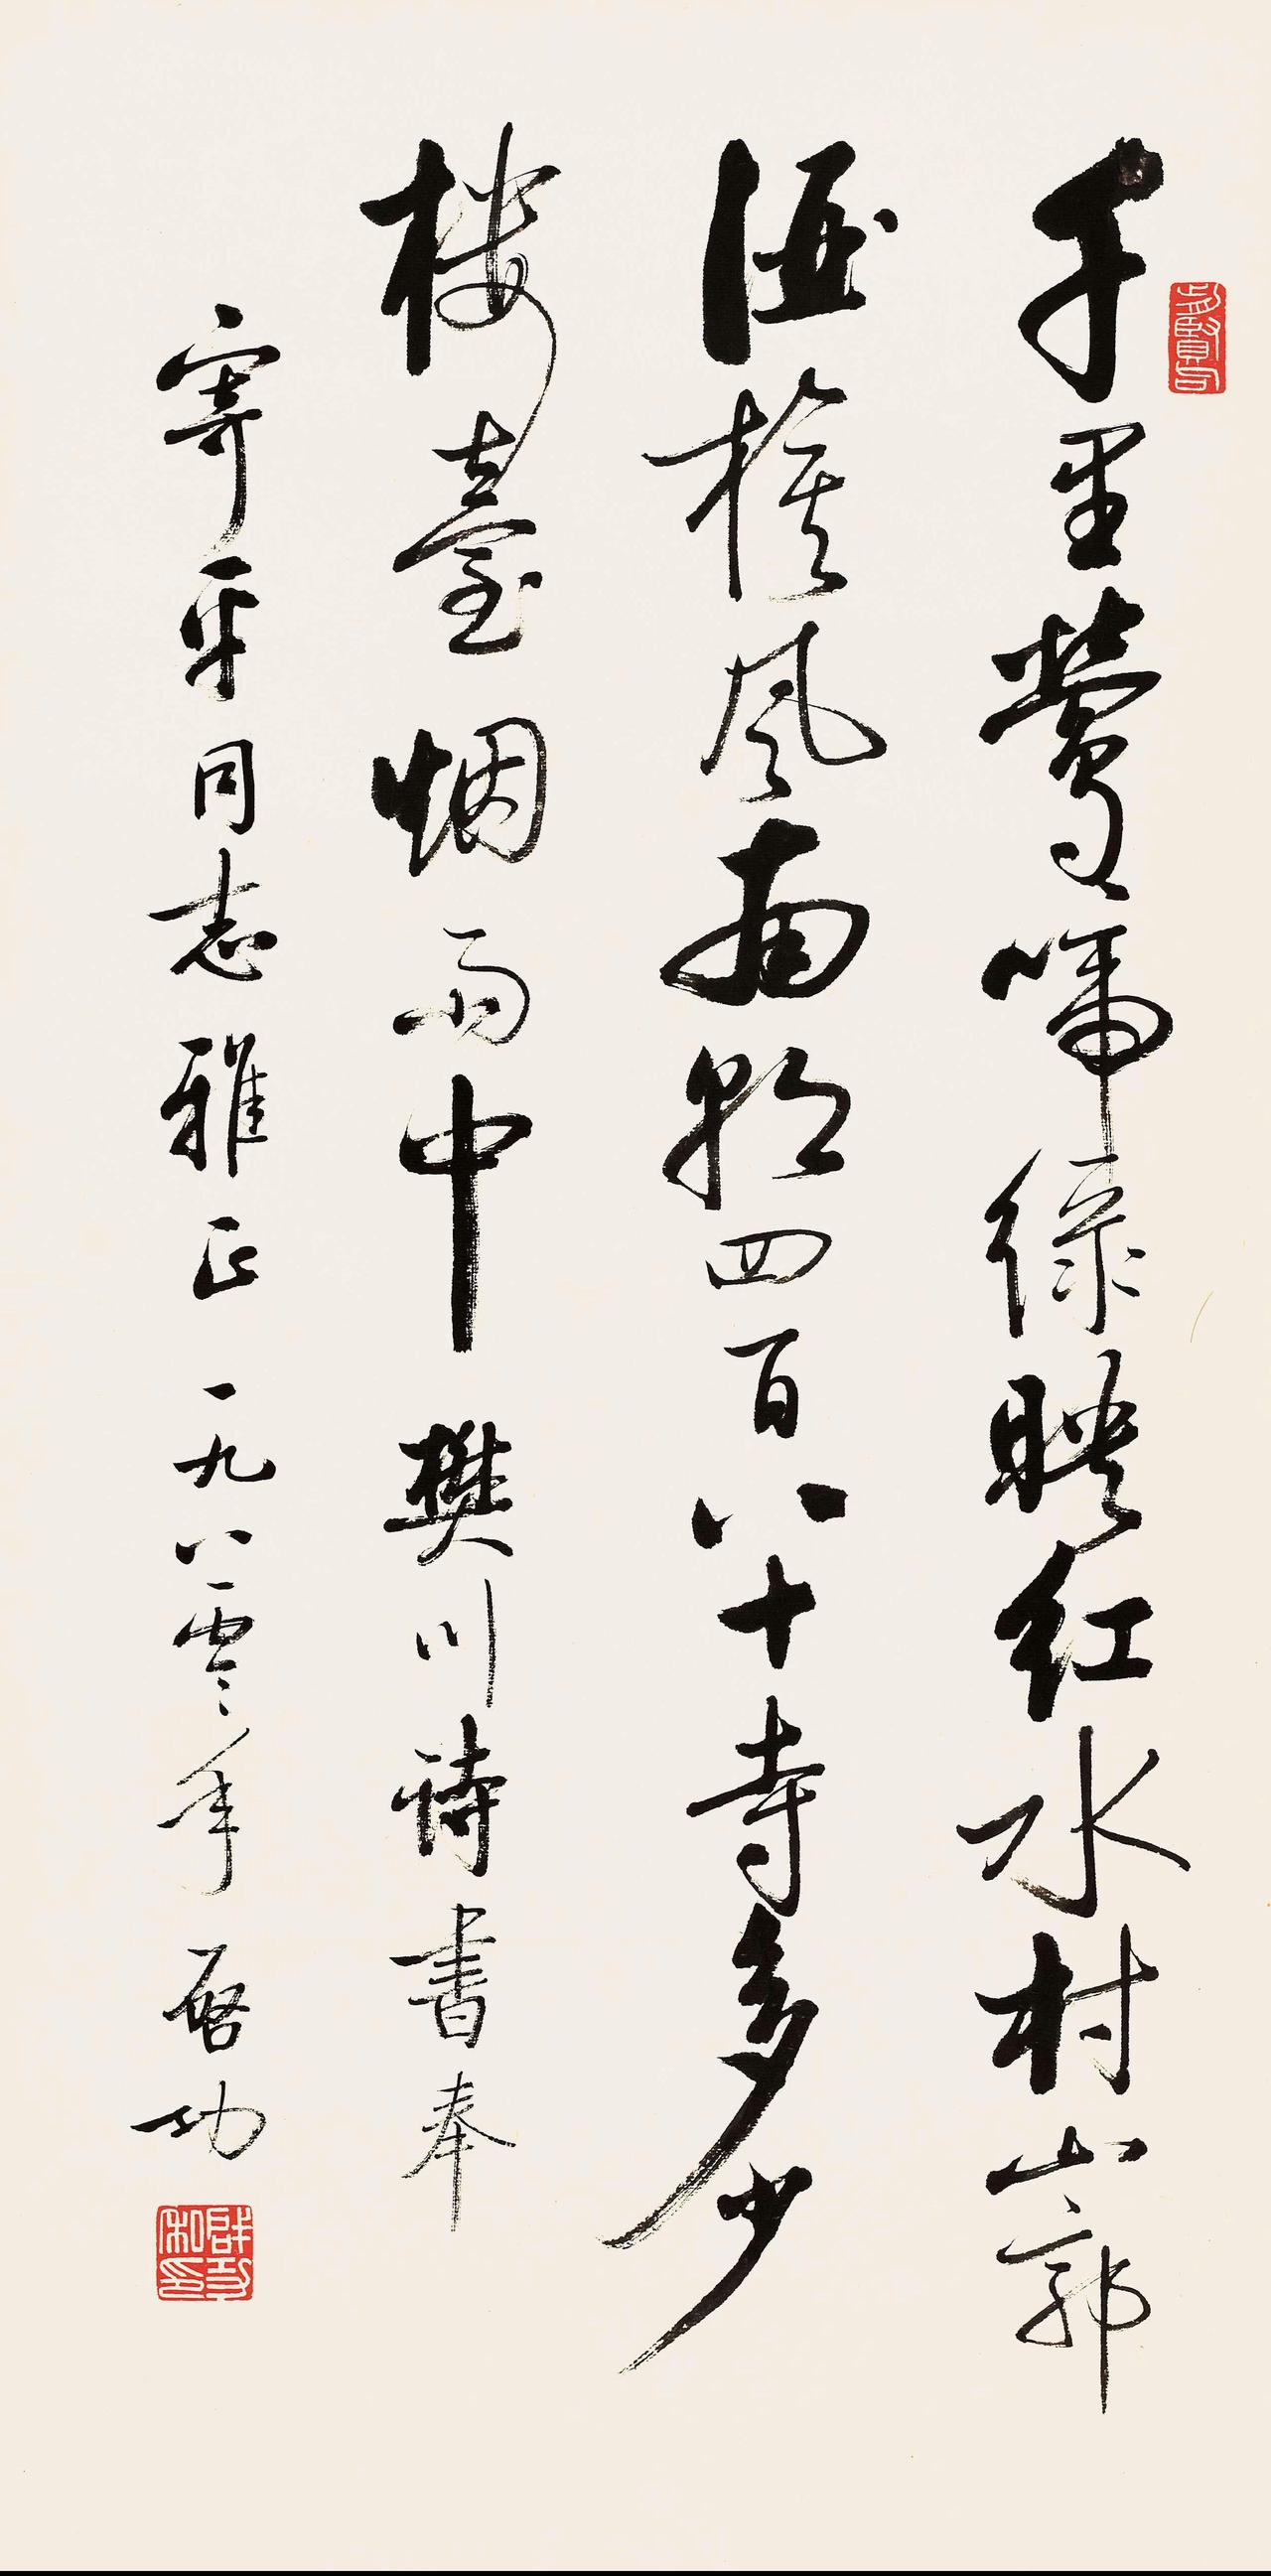 千里莺啼绿映红水村山郭
酒旗风南朝四百八十寺多少
楼臺烟雨中 樊川诗書奉
寄平同志雅正 一九八零年 启功